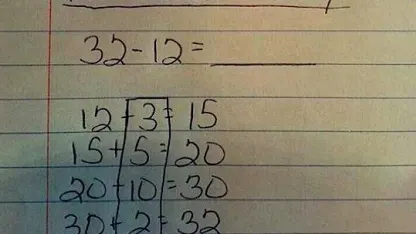 32-12=______
12+3=15
15+5=20
20+10=30
30+2=32